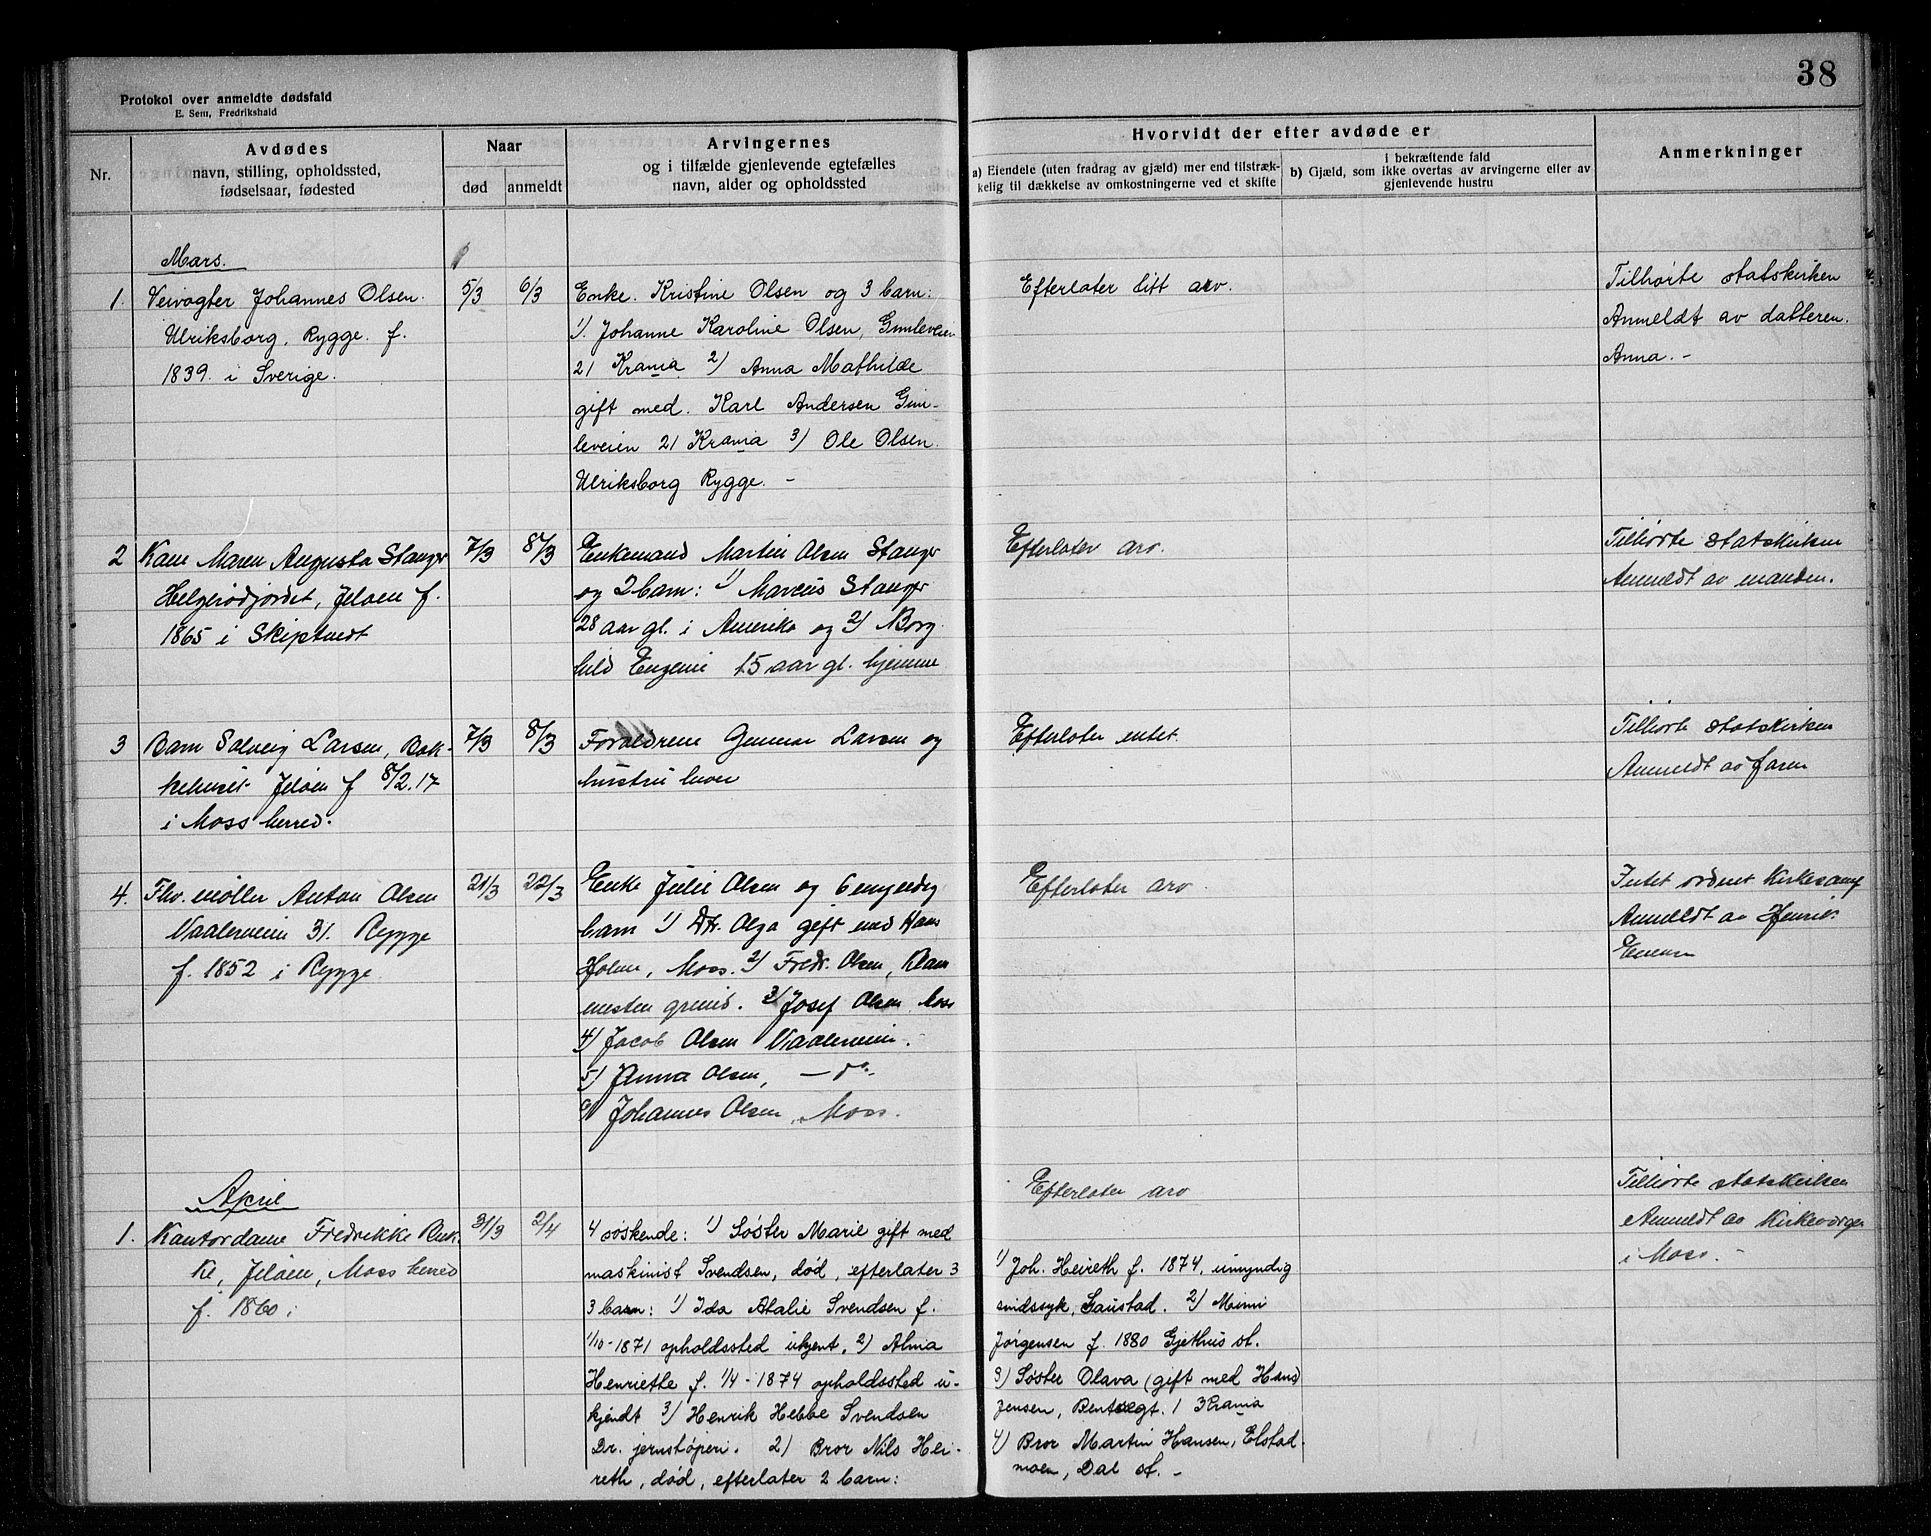 38
Protokol over anmeldte dødsfald
E. Sem, Fredrikshald
Nr.
Avdødes
navn, stilling, opholdssted,
fødselsaar, fødested
Naar
død
anmeldt
Arvingernes
og i tilfælde gjenlevende egtefælles
navn, alder og opholdssted
Hvorvidt der efter avdøde er
a) Eiendele (uten fradrag av gjæld) mer end tilstræk-
kelig til dækkelse av omkostningerne ved et skifte
i bekræftende fald
b) Gjæld, som ikke overtas av arvingerne eller av
gjenlevende hustru
Anmerkninger
Mars.
1.
Veivogter Johannes Olsen.
Ulriksborg, Rygge. f.
1839. i Sverige.
5/3
6/3
Enke. Kristine Olsen og 3 barn:
1). Johanne Karoline Olsen, Gimleveien
21 Krania 2) Anna Mathilde
gift med. Karl Andersen Gim-
leveien 21 Krania 3) Ole Olsen.
Ulriksborg Rygge. -
Efterlater litt arv.
Tilhørte statskirken
Anmeldt av datteren.
Anna. -
2
Kone Maren Augusta Stanger
Helgerødjordet, Jeløen f.
1865 i Skiptvedt
7/3
8/3
Enkemand Martin Olsen Stanger
og 2 barn: 1) Marcus Stanger
28 aar gl. i Amerika og 2) Borg-
hild Eugenie 15 aar gl. hjemme
Efterlater arv.
Tilhørte statskirken
Anmeldt av manden.
3
Barn Solveig Larsen, Bak-
kehuset Jeløen f 8/2.17
i Moss herred.
7/3
8/3
Forældrene Gunnar Larsen og
hustru
Efterlater intet.
Tilhørte statskirken
Anmeldt av faren
4.
Fhv. møller Anton Olsen
Vaalerveien 31. Rygge
f. 1852 i Rygge
21/3
22/3
Enke Julie Olsen og 6 myndig
barn 1) Dtr. Olga gift med Hans
Holm, Moss. 2) Fredr. Olsen,
grund. 3) Josef Olsen Moss
4) Jacob Olsen Vaalerveien.
5) Anna Olsen, — do.
6) Johannes Olsen, Moss.
Efterlater arv.
Intet ordnet kirkesamf
Anmeldt av Henrik
April
1.
Kontordame Fredrikke
Jeløen, Moss herred
f. 1860 i
31/3
2/4
4 søskende: 1) Søster Marie gift med
maskinist Svendsen, død, efterlater 3
3 barn: 1) Ida Atalie Svendsen f.
1/10-1871 opholdssted ukjent, 2) Alma
Henriette f. 1/4-1874 opholdssted u-
kjendt 3) Henrik Hebbe Svendsen
Dr. jernstøperi. 2) Bror Nils Hei-
reth, død, efterlater 2 barn:
Efterlater arv
1) Joh. Heireth f. 1874, umyndig
sindssyk, Gaustad. 2) Mimi
Jørgensen f. 1880 Gjethus st.
3) Søster Olava (gift med Hans
Jensen, Bentsegt. 1 Krania
4) Bror Martin Hansen, Elstad-
moen, Dal st. -
Tilhørte statskirken
Anmeldt av kirkeverger
i Moss. -